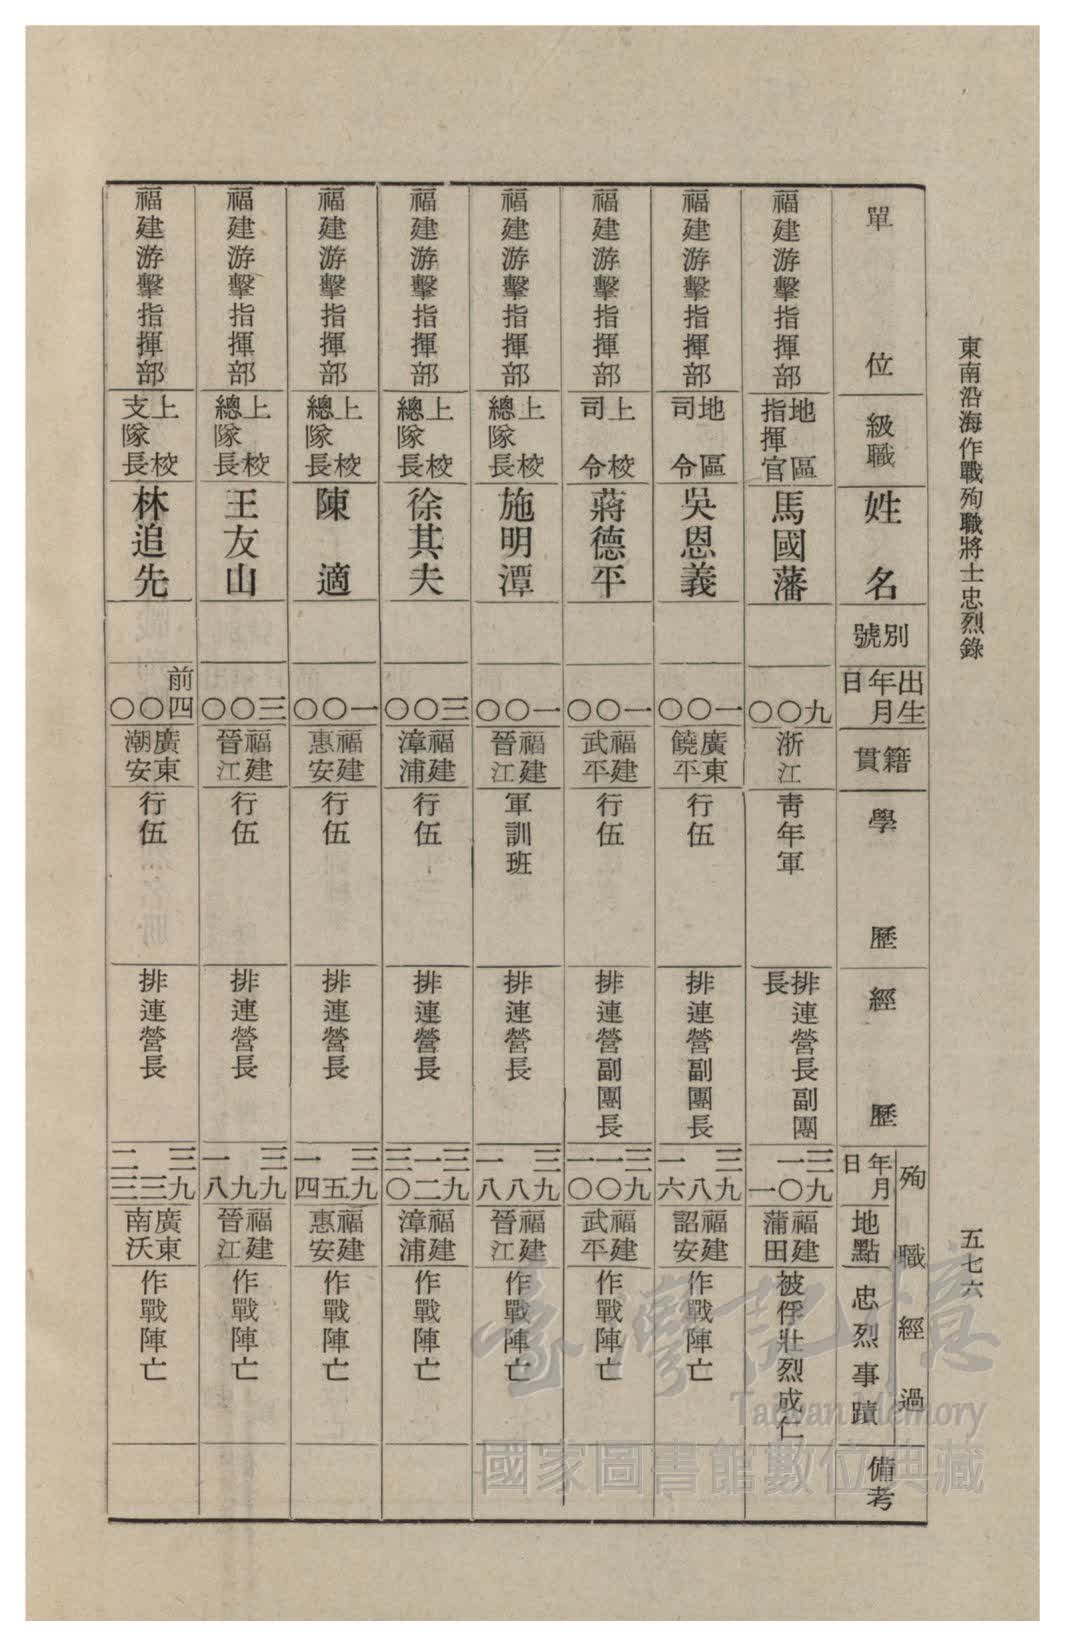 東南沿海作戰殉職將士忠烈錄　五七六
單位　級職　姓名　別號　出生年月日　籍貫　學歷　經歷　殉職經過　年月日　地點　忠烈事蹟　備考
福建游擊指揮部　地區指揮官　馬國藩　九　〇　〇　浙江　青年軍　排連營長副團長　三九　一〇　一　福建蒲田　被俘壯烈成仁
福建游擊指揮部　地區司令　吳恩義　一　〇　〇　廣東饒平　行伍　排連營副團長　三九　八　一六　福建詔安　作戰陣亡
福建游擊指揮部　上校司令　蔣德平　一　〇　〇　福建武平　行伍　排連營副團長　三九　一〇　一〇　福建武平　作戰陣亡
福建游擊指揮部　上校總隊長　施明潭　一　〇　〇　福建晉江　軍訓班　排連營長　三九　八　一八　福建晉江　作戰陣亡
福建游擊指揮部　上校總隊長　徐其夫　三　〇　〇　福建漳浦　行伍　排連營長　三九　一二　三〇　福建漳浦　作戰陣亡
福建游擊指揮部　上校總隊長　陳適　一　〇　〇　福建惠安　行伍　排連營長　三九　五　一四　福建惠安　作戰陣亡
福建游擊指揮部　上校總隊長　王友山　三　〇　〇　福建晉江　行伍　排連營長　三九　九　一八　福建晉江　作戰陣亡
福建游擊指揮部　上校支隊長　林追先　前四　〇　〇　廣東潮安　行伍　排連營長　三九　三　二三　廣東南沃　作戰陣亡
臺灣記憶
Taiwan Memory
國家圖書館數位典藏